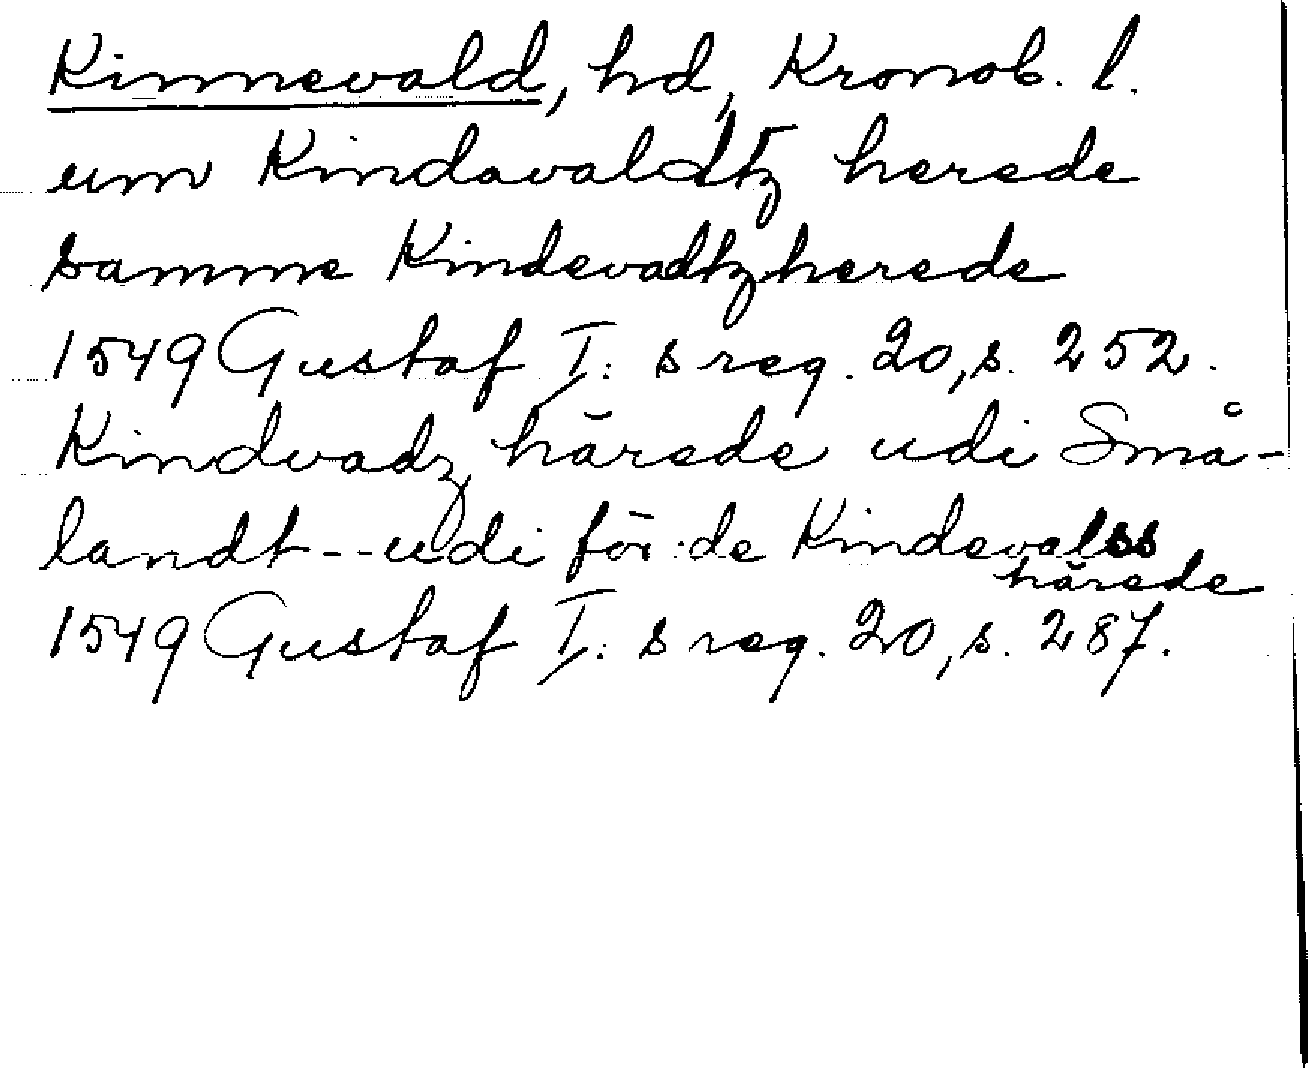 Kinnevald, hd, Kronob. l.
um Kindavaldtz herede
samme Kindevadtzherede
1549 Gustaf I:s reg. 20, s. 252.
Kindvadz härede udi Små-
landt -- udi för:de Kindevalss
härede
1549 Gustaf I:s reg. 20, s. 287.